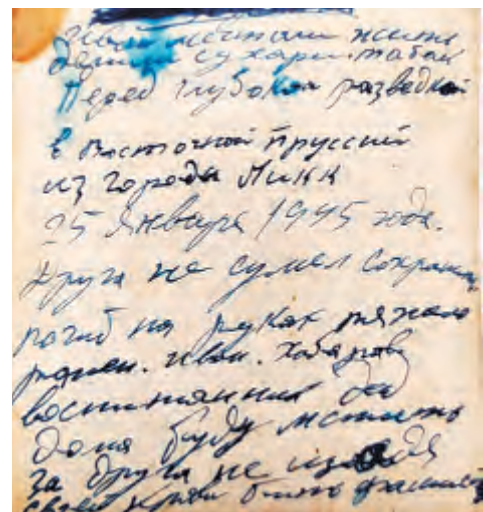 жить
делили сухари. табак
Перед глубокой разведкой
в восточной пруссии
из города Ликк
25 января 1945 года.
друга не сумел сохранить
погиб на руках тяжело
ранен. иван.
воспитанник дед
дома буду мстить
за друга не щадя
своей крови бить фашист